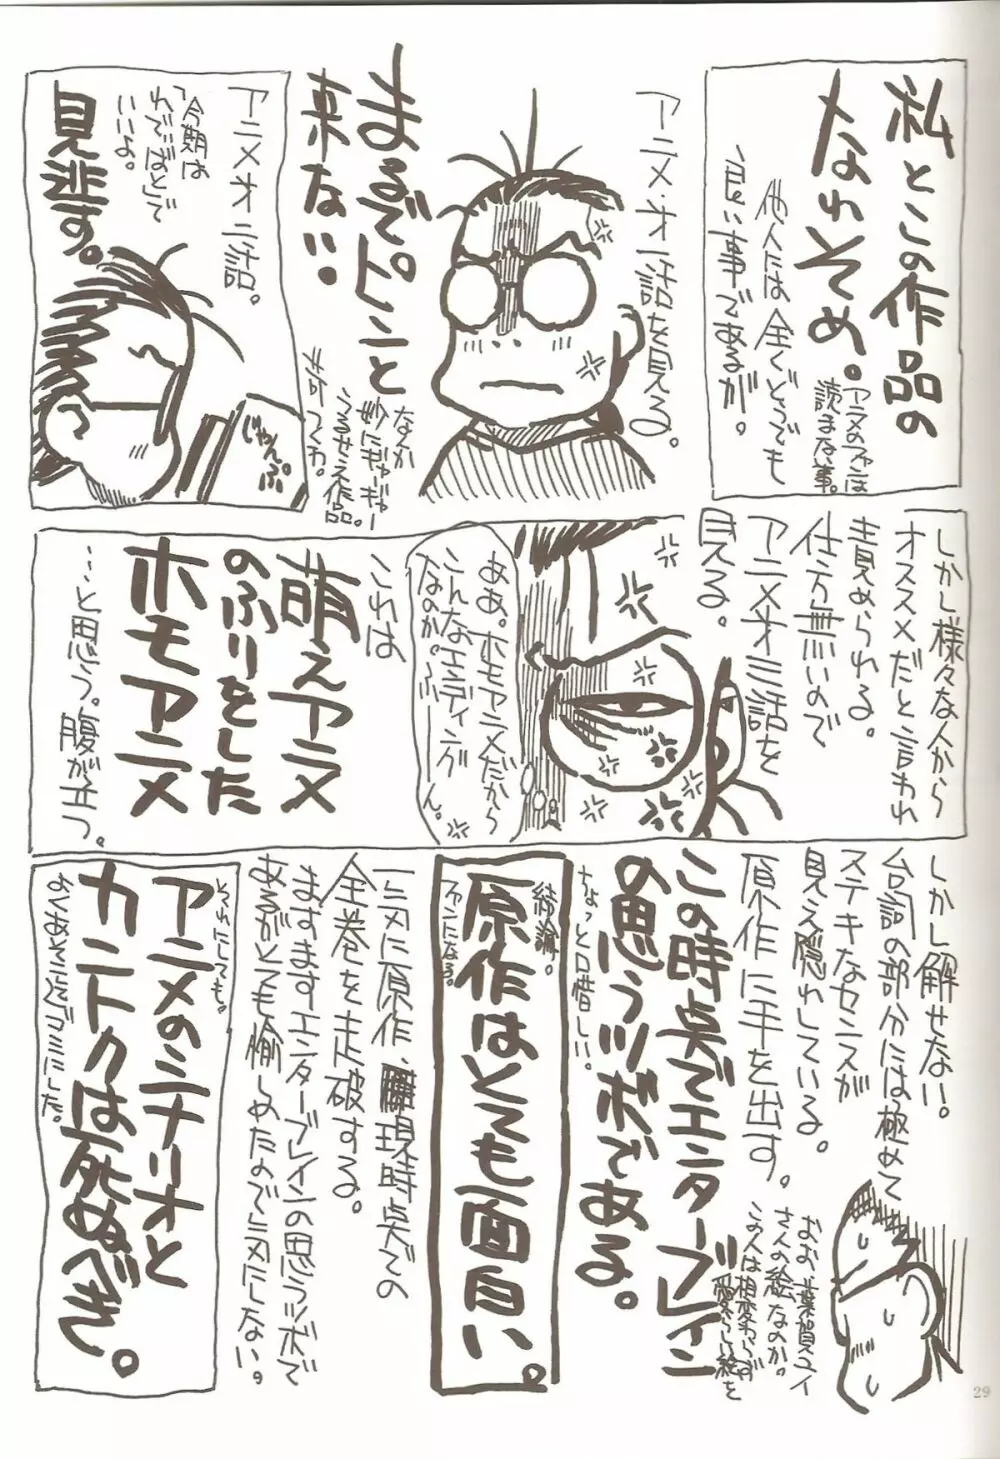 私とこの作品の
なれそめ。
アニメのファンは
読まな事。
他人には全くどうでも
良い事であるが。
アニメ・オ一話を見る。
まるでピンと
来ない。
なんか
妙にギャーギャー
うるせえ作品。
アニメオ二話。
「今期は
れでぃばと」で
いいよ。
見逃す。
じゃんぷ
しかし様々な人から
オススメだと言われ
責められる。
仕方無いので
アニメオ三話を
見る。
ああ。ホモアニメだから
こんなエンディング
なのか。ふーん。
これは
萌えアニメ
のふりをした
ホモアニメ
…と思う。腹が立つ。
しかし解せない。
台詞の部分には極めて
ステキなセンスが
見え隠れしている。
原作に手を出す。
おお、葉賀ユイ
さんの絵なのか。
この人は相変わらず
愛らしい絵を
この時点でエンターブレイン
の思うツボである。
ちょっと口惜しい…
結論。
原作はとても面白い。
ファンになる。
一気に原作、現時点での
全巻を走破する。
ますますエンターブレインの思うツボで
あるがとても愉しめたので気にしない。
それにしても。
アニメのシナリオと
カントクは死ぬべき。